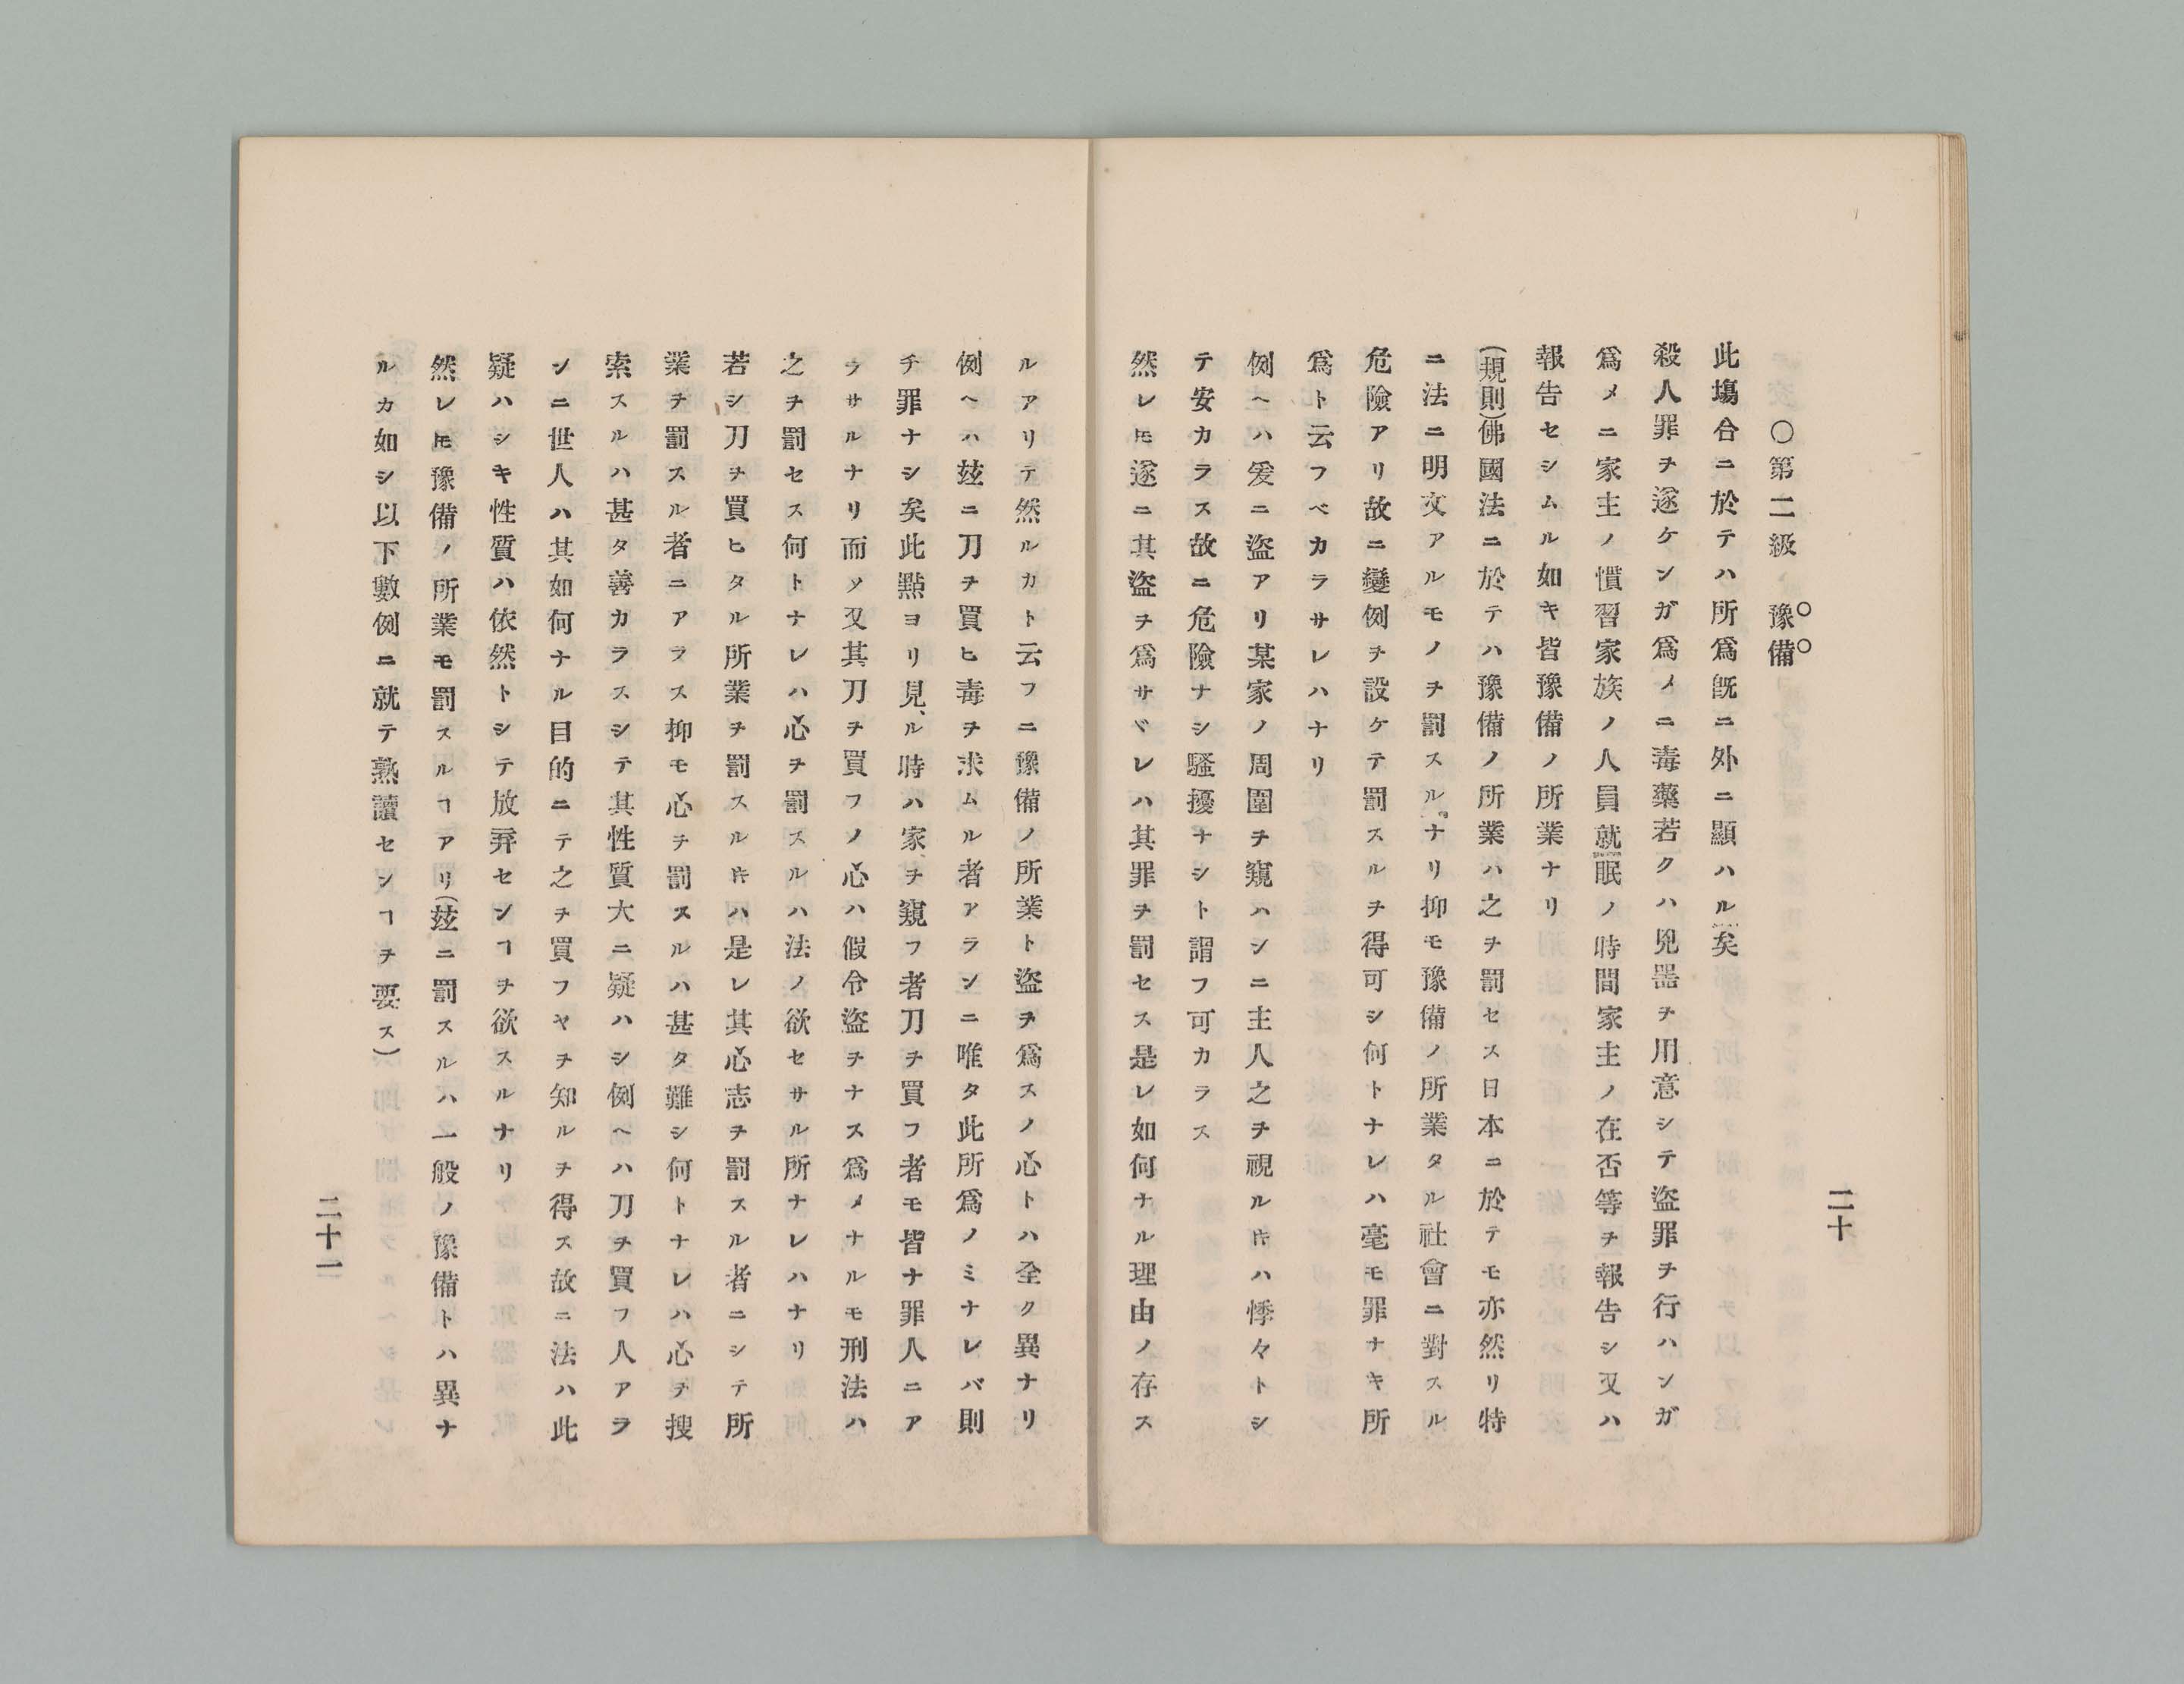 二十
○第二級　豫備
此塲合ニ於テハ所爲旣ニ外ニ顯ハル矣
殺人罪ヲ遂ケンガ爲メニ毒藥若クハ兇噐ヲ用意シテ盜罪ヲ行ハンガ
爲メニ家主ノ慣習家族ノ人員就眠ノ時間家主ノ在否等ヲ報告シ又ハ
報告セシムル如キ皆豫備ノ所業ナリ
(規則)佛國法ニ於テハ豫備ノ所業ハ之ヲ罰セス日本ニ於テモ亦然リ特
ニ法ニ明文アルモノヲ罰スルナリ抑モ豫備ノ所業タル社會ニ對スル
危險アリ故ニ變例ヲ設ケテ罰スルヲ得可シ何トナレハ毫モ罪ナキ所
爲ト云フベカラサレハナリ
例ヘハ爰ニ盜アリ某家ノ周圍ヲ窺ハンニ主人之ヲ視ルヰハ悸々トシ
テ安カラス故ニ危險ナシ騷擾ナシト謂フ可カラス
然レ𪜈遂ニ其盜ヲ爲サヾレハ其罪ヲ罰セス是レ如何ナル理由ノ存ス
ルアリテ然ルカト云フニ豫備ノ所業ト盜ヲ爲スノ心トハ全ク異ナリ
例ヘハ玆ニ刀ヲ買ヒ毒ヲ求ムル者アランニ唯タ此所爲ノミナレバ則
チ罪ナシ矣此點ヨリ見ル時ハ家ヲ窺フ者刀ヲ買フ者モ皆ナ罪人ニア
ラサルナリ而〆又其刀ヲ買フノ心ハ假令盜ヲナス爲メナルモ刑法ハ
之ヲ罰セス何トナレハ心ヲ罰スルハ法ノ欲セサル所ナレハナリ
若シ刀ヲ買ヒタル所業ヲ罰スルヰハ是レ其心志ヲ罰スル者ニシテ所
業ヲ罰スル者ニアラス抑モ心ヲ罰スルハ甚タ難シ何トナレハ心ヲ搜
索スルハ甚タ善カラスシテ其性質大ニ疑ハシ例ヘハ刀ヲ買フ人アラ
ンニ世人ハ其如何ナル目的ニテ之ヲ買フヤヲ知ルヲ得ス故ニ法ハ此
疑ハシキ性質ハ依然トシテ放弃センヿヲ欲スルナリ
然レ𪜈豫備ノ所業モ罰スルヿアリ(玆ニ罰スルハ一般ノ豫備トハ異ナ
ルカ如シ以下數例ニ就テ熟讀センヿヲ要ス)
二十一